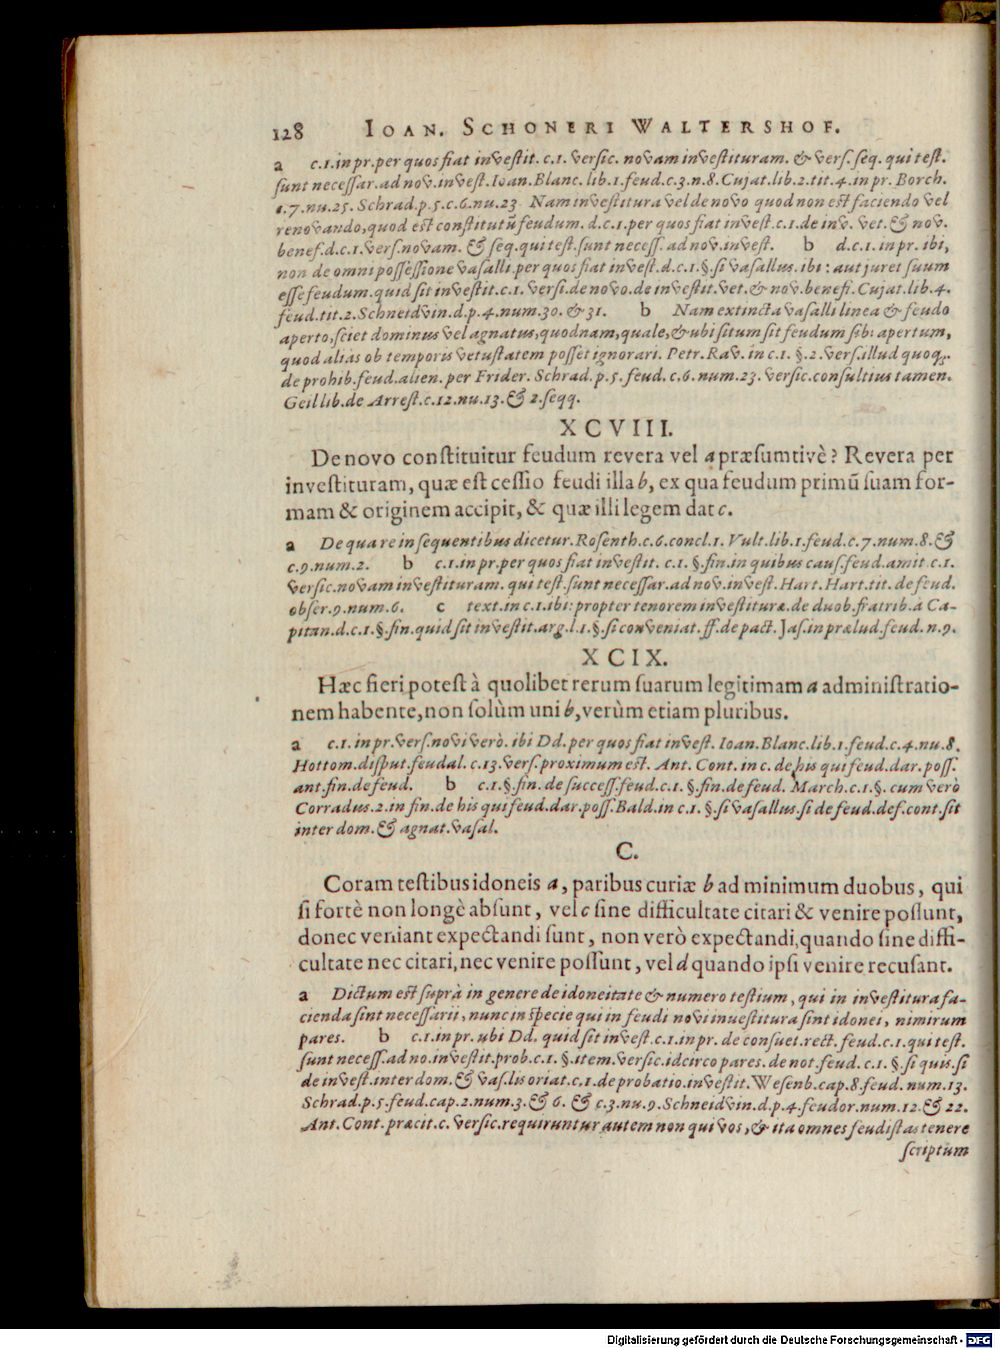 128 IOAN. SCHONERI WALTERSHOF.
a c.1. in pr. per quos fiat investit. c.1. versic. novam investituram. & vers. seq. qui test.
sunt necessar. ad nov. invest. Ioan. Blanc. lib. 1. feud. c.3. n.8. Cujat. lib. 2. tit. 4. in pr. Borch.
c.7. nu. 25. Schrad. p.5. c.6. nu. 23. Nam investitura vel de novo quod non est faciendo vel
renovando, quod est constitutũ feudum. d.c.1. per quos fiat invest. c.1. de inv. vet. & nov.
benef. d.c.1. vers. novam. & seq. qui test. sunt necess. ad nov. invest. b d.c.1. in pr. ibi,
non de omni possessione vasalli. per quos fiat invest. d.c.1. §. si vasallus. ibi: aut juret suum
esse feudum. quid sit investit. c.1. versi. de novo. de investit. vet. & nov. benefi. Cujat. lib. 4.
feud. tit. 2. Schneidvin. d. p. 4. num. 30. & 31. b Nam extincta vasalli linea & feudo
aperto, sciet dominus vel agnatus, quodnam, quale, & ubi situm sit feudum sibi apertum,
quod aliàs ob temporis vetustatem posset ignorari. Petr. Rav. in c.1. §.2. vers. illud quoq;.
de prohib. feud. alien. per Frider. Schrad. p.5. feud. c.6. num. 23. versic. consultius tamen.
Geil lib. de Arrest. c.12. nu. 13. & 2. seqq.
XCVIII.
De novo constituitur feudum revera vel a præsumtivè? Revera per
investituram, quæ est cessio feudi illa b, ex qua feudum primũ suam for-
mam & originem accipit, & quæ illi legem dat c.
a De qua re in sequentibus dicetur. Rosenth. c.6. concl. 1. Vult. lib. 1. feud. c.7. num. 8. &
c.9. num. 2. b c.1. in pr. per quos fiat investit. c.1. §. fin. in quibus caus. feud. amit. c.1.
versic. novam investituram. qui test. sunt necessar. ad nov. invest. Hart. Hart. tit. de feud.
obser. 9. num. 6. c text. in c.1. ibi: propter tenorem investituræ. de duob. fratrib. à Ca-
pitan. d.c.1. §. fin. quid sit investit. arg. l.1. §. si conveniat. ff. de pact. Jas. in prælud. feud. n.9.
XCIX.
Hæc fieri potest à quolibet rerum suarum legitimam a administratio-
nem habente, non solùm uni b, verùm etiam pluribus.
a c.1. in pr. vers. novi verò. ibi Dd. per quos fiat invest. Ioan. Blanc. lib. 1. feud. c.4. nu. 8.
Hottom. disput. feudal. c.13. vers. proximum est. Ant. Cont. in c. de his qui feud. dar. poss.
ant. fin. de feud. b c.1. §. fin. de success. feud. c.1. §. fin. de feud. March. c.1. §. cum verò
Corradus. 2. in fin. de his qui feud. dar. poss. Bald. in c.1. §. si vasallus. si de feud. def. cont. sit
inter dom. & agnat. vasal.
C.
Coram testibus idoneis a, paribus curiæ b ad minimum duobus, qui
si fortè non longè absunt, vel c sine difficultate citari & venire possunt,
donec veniant expectandi sunt, non verò expectandi, quando sine diffi-
cultate nec citari, nec venire possunt, vel d quando ipsi venire recusant.
a Dictum est suprà in genere de idoneitate & numero testium, qui in investitura fa-
cienda sint necessarii, nunc in specie qui in feudi novi inuestitura sint idonei, nimirum
pares. b c.1. in pr. ubi Dd. quid sit invest. c.1. in pr. de consuet. rect. feud. c.1. qui test.
sunt necess. ad no. investit. prob. c.1. §. item. versic. idcirco pares. de not. feud. c.1. §. si quis. si
de invest. inter dom. & vas. lis oriat. c.1. de probatio. investit. Wesenb. cap. 8. feud. num. 13.
Schrad. p.5. feud. cap. 2. num. 3. & 6. & c.3. nu. 9. Schneidvin. d. p. 4. feudor. num. 12. & 22.
Ant. Cont. præcit. c. versic. requiruntur autem non qui vos, & ita omnes feudistas tenere
scriptum
Digitalisierung gefördert durch die Deutsche Forschungsgemeinschaft - DFG